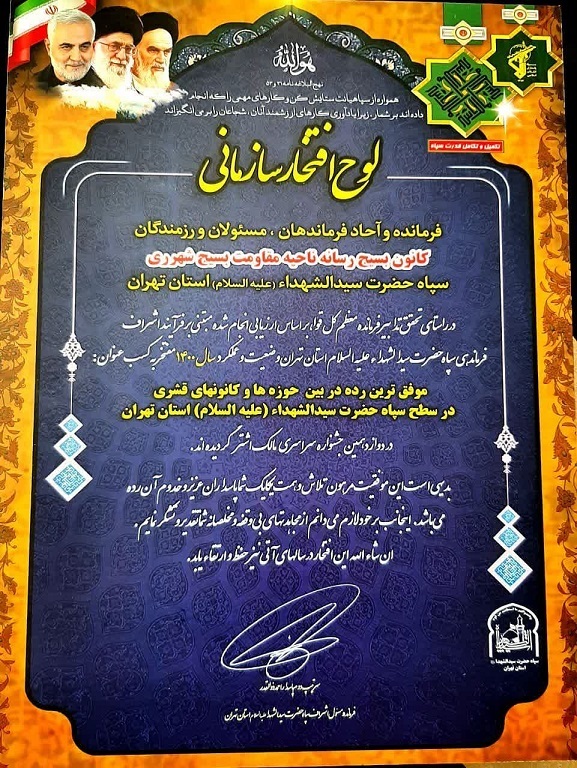 هوالله
نهج البلاغه نامه ۳۱ و ۵۳
همواره از سپاهیانت ستایش کن و کارهای مهمی را که انجام
داده اند بر شمار، زیرا یادآوری کارهای ارزشمند آنان، شجاعان را بر می انگیزاند
تکمیل و تکامل قدرت سپاه
لوح افتخار سازمانی
فرمانده و آحاد فرماندهان ، مسئولان و رزمندگان
کانون بسیج رسانه ناحیه مقاومت بسیج شهرری
سپاه حضرت سیدالشهداء (علیه السلام) استان تهران
در راستای تحقق تدابیر فرمانده معظم کل قوا، بر اساس ارزیابی انجام شده مبتنی بر فرآیند اشراف
فرماندهی سپاه حضرت سیدالشهداء علیه السلام استان تهران وضعیت و عملکرد سال ۱۴۰۰ مفتخر به کسب عنوان :
موفق ترین رده در بین حوزه ها و کانونهای قشری
در سطح سپاه حضرت سیدالشهداء (علیه السلام) استان تهران
در دوازدهمین جشنواره سراسری مالک اشتر گردیده اند.
بدیهی است این موفقیت مرهون تلاش و همت یکایک شما پاسداران عزیز و خدوم آن رده
می باشد. اینجانب بر خود لازم می دانم از مجاهدتهای بی وقفه و مخلصانه شما تقدیر و تشکر نمایم .
ان شاء الله این افتخار در سالهای آتی نیز حفظ و ارتقاء یابد.
سرتیپ دوم پاسدار احمد ذوالقدر
فرمانده و مسئول اشراف سپاه حضرت سیدالشهداء علیه السلام استان تهران
سپاه حضرت سیدالشهدا
استان تهران